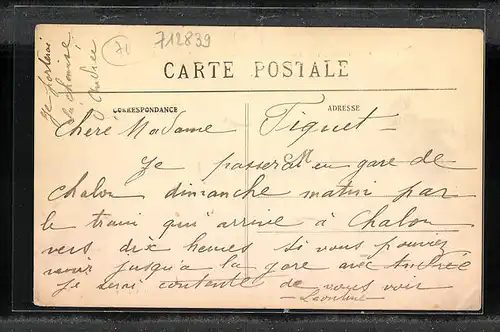 71
712839
Je porterai
la chemise
d'Andrée
CARTE POSTALE
CORRESPONDANCE
ADRESSE
Chère Madame Tiquet -
Je passerai en gare de
Chalon dimanche matin par
le train qui arrive à Chalon
vers dix heures si vous pouviez
venir jusqu'a la gare avec Andrée
je serai contente de vous voir
Léontine